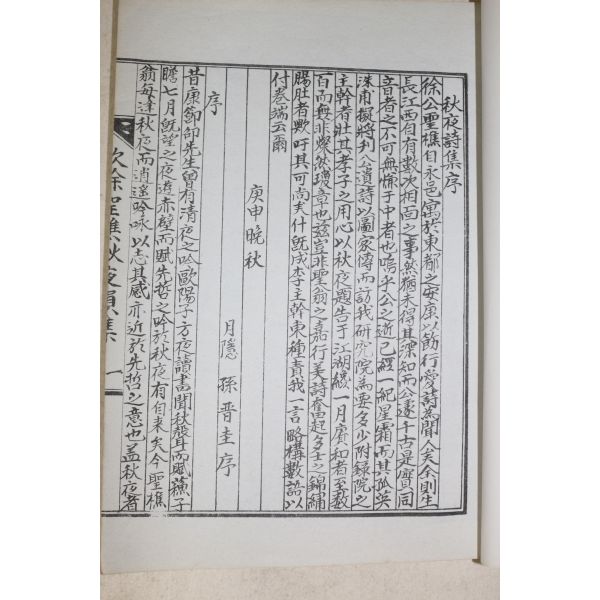 秋夜詩集序
徐公聖樵自永邑寓於東都之安康以飭行愛詩為聞人矣余則生
長江西自有數次相面之事然猶未得其深知而公遽千古是實同
音者之不可無悵于中者也嗚乎公之逝已經一紀星霜而其孤英
洙甫擬將刊公遺詩以圖家傳而訪我研究院為要多少附錄院之
主幹者壯其孝子之用心以秋夜題告于江湖纔一月賡和者至數
百而無非燦然瓊章也玆豈非聖翁之嘉行美詩奮起多士之錦繡
腸肚者歟吁其可尚矣什旣成李主幹東種責我一言略構數語以
付卷端云爾
庚申晩秋
月隱 孫晋圭序
序
昔康節邵先生曾有清夜之吟歐陽子方夜讀書聞秋聲而賦蘓子
瞻七月旣望之夜遊赤壁而賦先哲之吟於秋夜有自来矣今聖樵
翁每逢秋夜而逍遥吟咏以志其感亦近於先哲之意也盖秋夜者
次徐聖樵秋夜韻集 一